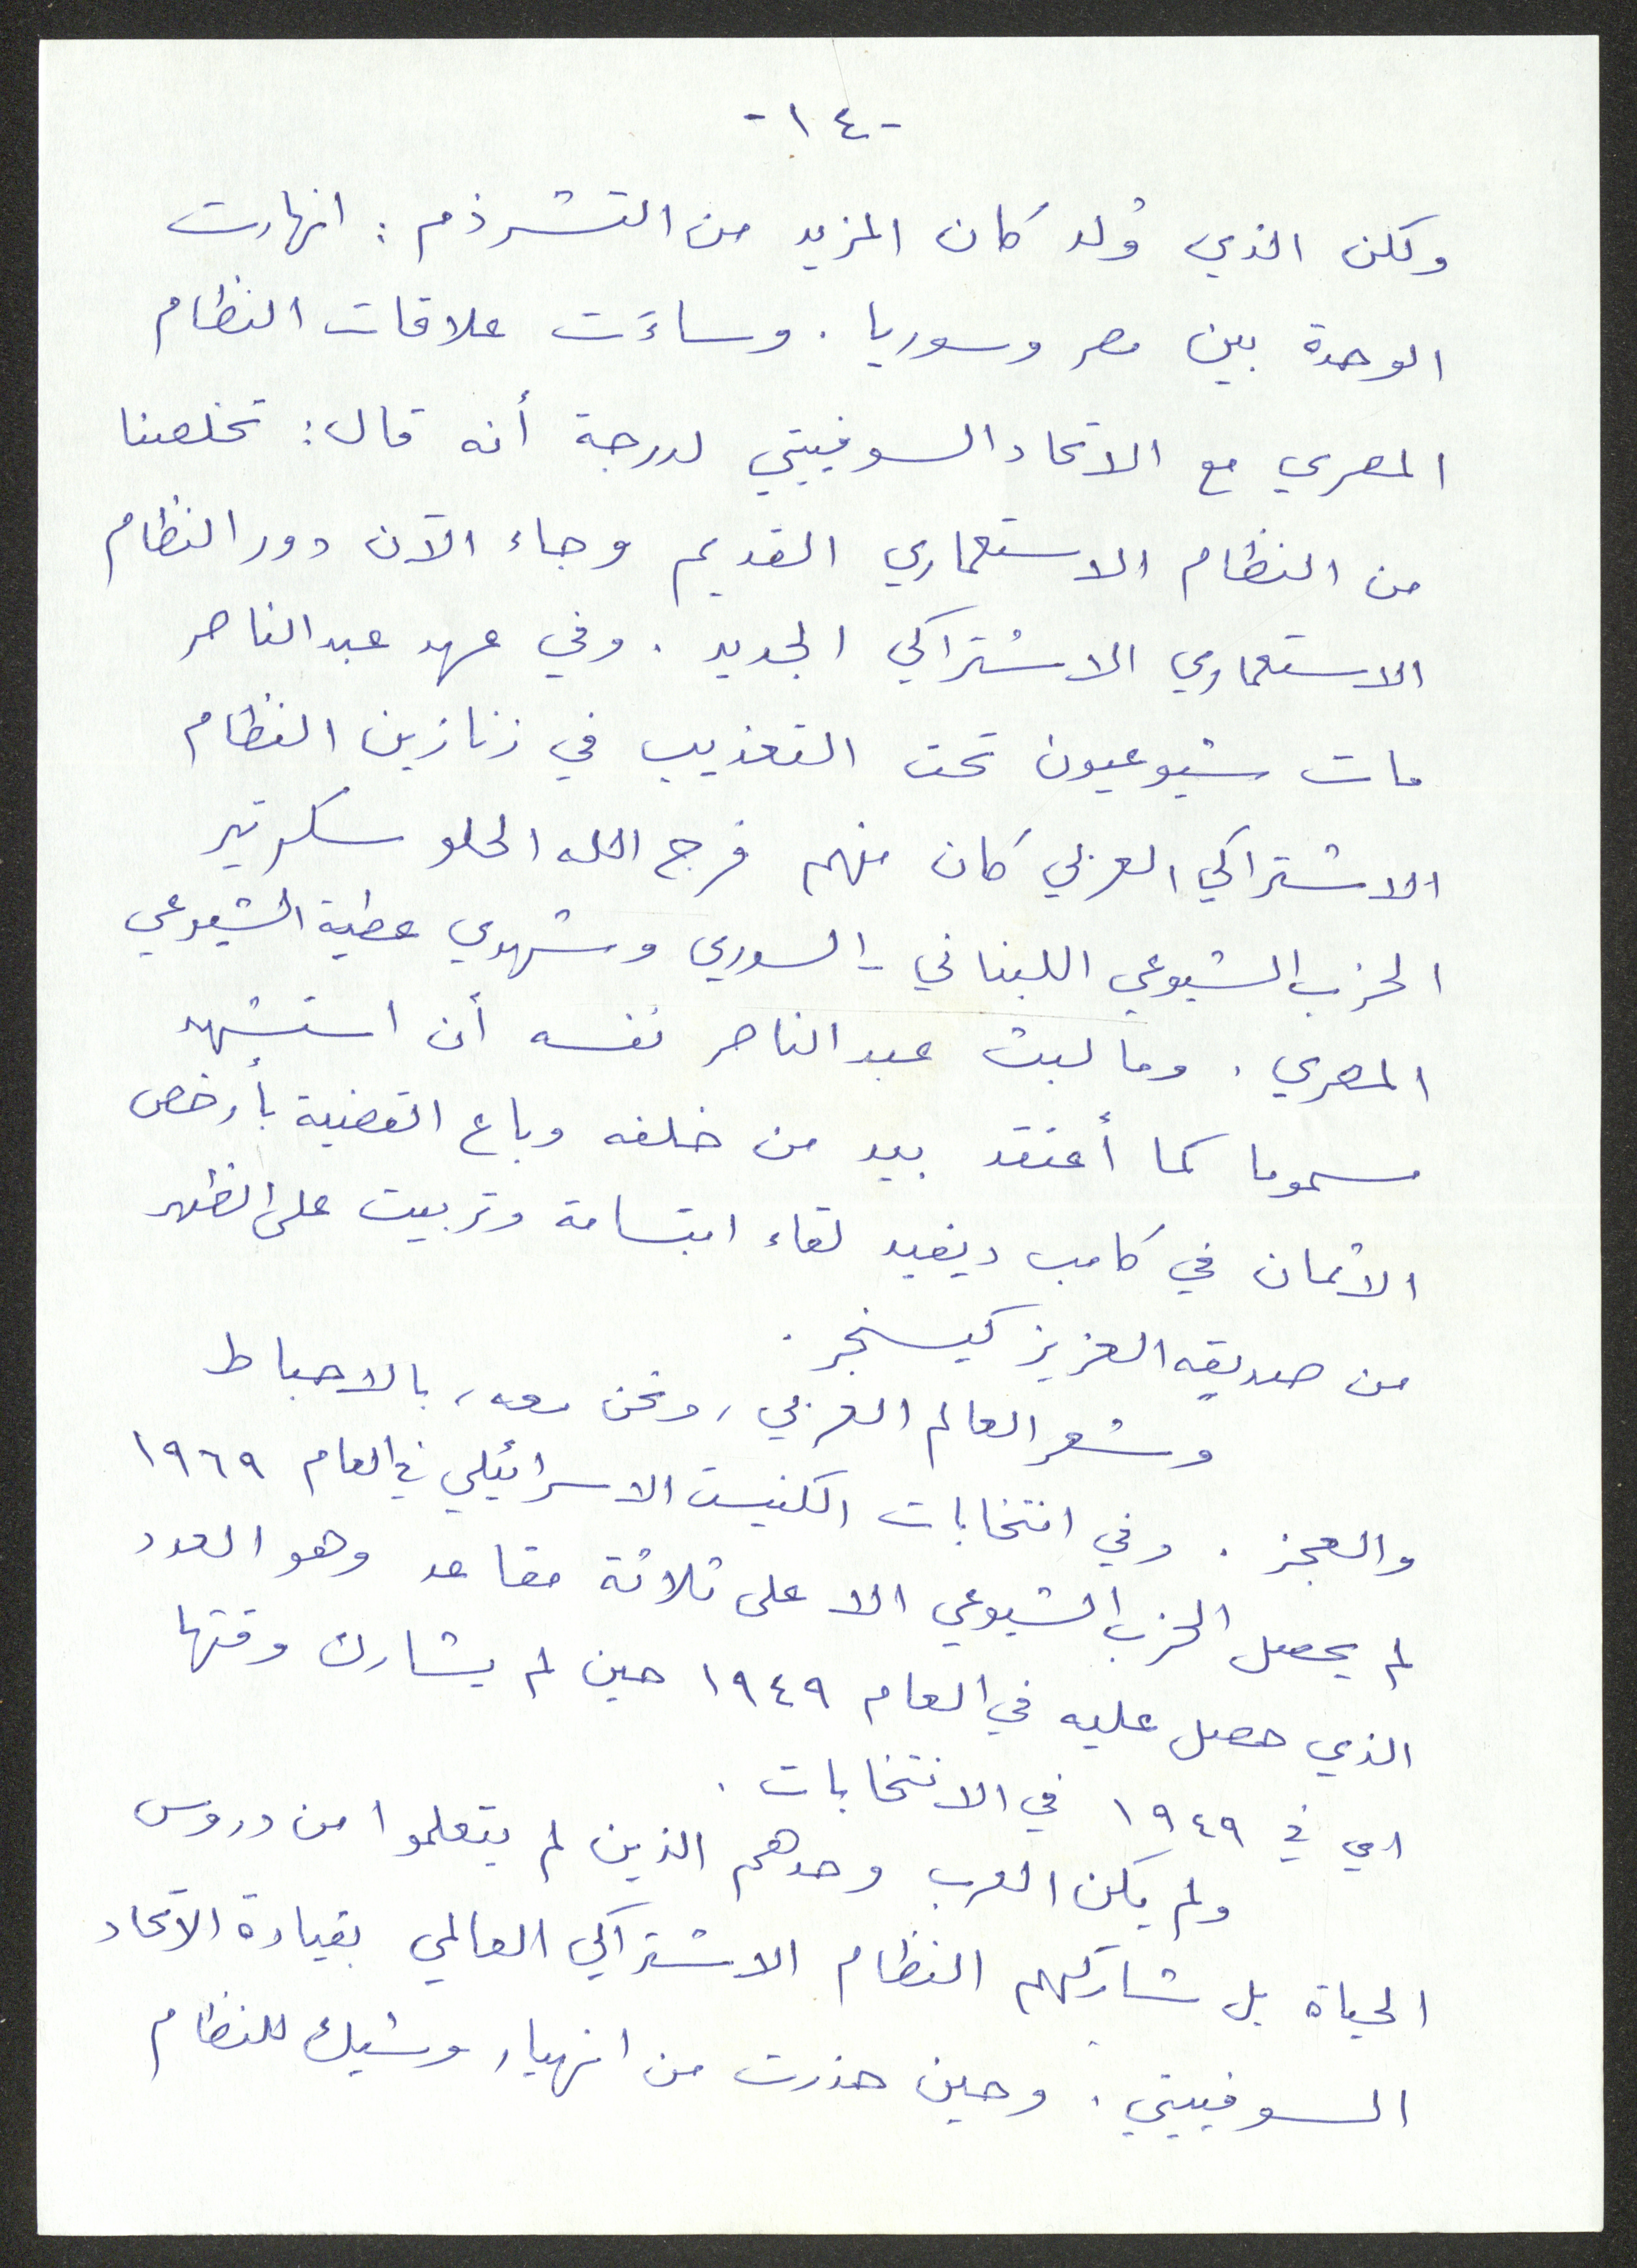 -١٤-
ولكن الذي وُلد كان المزيد من التشرذم : انهارت
الوحدة بين مصر وسوريا . وساءت علاقات النظام
المصري مع الاتحاد السوفييتي لدرجة أنه قال : تخلصنا
من النظام الاستعماري القديم وجاء الآن دور النظام
الاستعماري الاشتراكي الجديد . وفي عهد عبد الناصر
مات شيوعيون تحت التعذيب في زنازين النظام
الاشتراكي العربي كان منهم فرج الله الحلو سكرتير
الحزب الشيوعي اللبناني - السوري وشهدي عطية الشيوعي
المصري . وما لبث عبد الناصر نفسه أن استشهد
مسموما كما أعتقد بيد من خلفه وباع القضية بأرخص
الاثمان في كامب ديفيد لقاء ابتسامة وتربيت على الظهر
من صديقه العزيز كيسنجر .
وشعر العالم العربي ، ونحن معه ، بالاحباط
والعجز . وفي انتخابات الكنيست الاسرائيلي في العام ١٩٦٩
لم يحصل الحزب الشيوعي الا على ثلاثة مقاعد وهو العدد
الذي حصل عليه في العام ١٩٤٩ حين لم يشارك وقتها
اي في ١٩٤٩ في الانتخابات .
ولم يكن العرب وحدهم الذين لم يتعلموا من دروس
الحياة بل شاركهم النظام الاشتراكي العالمي بقيادة الاتحاد
السوفييتي . وحين حذرت من انهيار وشيك للنظام